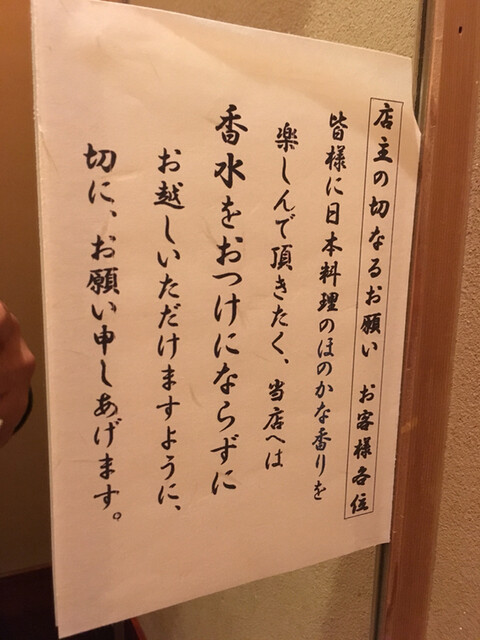 店主の切なるお願い　お客様各位
皆様に日本料理のほのかな香りを
楽しんで頂きたく、当店へは
香水をおつけにならずに
お越しいただけますように、
切に、お願い申しあげます。